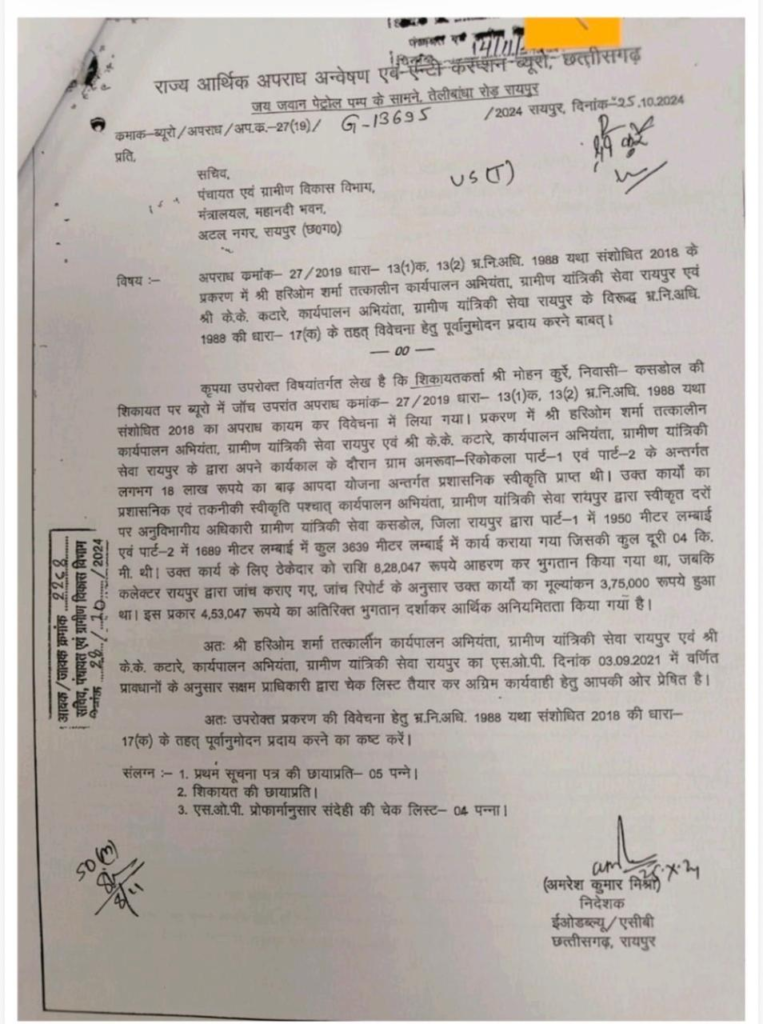 पंचायत एवं
14/11/
राज्य आर्थिक अपराध अन्वेषण एवं एन्टी करप्शन ब्यूरो, छत्तीसगढ़
जय जवान पेट्रोल पम्प के सामने, तेलीबांधा रोड़ रायपुर
कमाक–ब्यूरो/अपराध/अप.क.–27(19)/ G-13695 /2024 रायपुर, दिनांक–25.10.2024
प्रति,
सचिव,
पंचायत एवं ग्रामीण विकास विभाग,
मंत्रालयल, महानदी भवन,
अटल नगर, रायपुर (छ0ग0)
US(T)
विषय :– अपराध कमांक– 27/2019 धारा– 13(1)क, 13(2) भ्र.नि.अधि. 1988 यथा संशोधित 2018 के
प्रकरण में श्री हरिओम शर्मा तत्कालीन कार्यपालन अभियंता, ग्रामीण यांत्रिकी सेवा रायपुर एवं
श्री के.के. कटारे, कार्यपालन अभियंता, ग्रामीण यांत्रिकी सेवा रायपुर के विरूद्ध भ्र.नि.अधि.
1988 की धारा– 17(क) के तहत् विवेचना हेतु पूर्वानुमोदन प्रदाय करने बाबत्।
— 00 —
कृपया उपरोक्त विषयांतर्गत लेख है कि शिकायतकर्ता श्री मोहन कुर्रे, निवासी– कसडोल की
शिकायत पर ब्यूरो में जॉच उपरांत अपराध कमांक– 27/2019 धारा– 13(1)क, 13(2) भ्र.नि.अधि. 1988 यथा
संशोधित 2018 का अपराध कायम कर विवेचना में लिया गया। प्रकरण में श्री हरिओम शर्मा तत्कालीन
कार्यपालन अभियंता, ग्रामीण यांत्रिकी सेवा रायपुर एवं श्री के.के. कटारे, कार्यपालन अभियंता, ग्रामीण यांत्रिकी
सेवा रायपुर के द्वारा अपने कार्यकाल के दौरान ग्राम अमरूवा–रिकोकला पार्ट–1 एवं पार्ट–2 के अन्तर्गत
लगभग 18 लाख रूपये का बाढ़ आपदा योजना अन्तर्गत प्रशासनिक स्वीकृति प्राप्त थी। उक्त कार्यो का
प्रशासनिक एवं तकनीकी स्वीकृति पश्चात् कार्यपालन अभियंता, ग्रामीण यांत्रिकी सेवा रायपुर द्वारा स्वीकृत दरों
पर अनुविभागीय अधिकारी ग्रामीण यांत्रिकी सेवा कसडोल, जिला रायपुर द्वारा पार्ट–1 में 1950 मीटर लम्बाई
एवं पार्ट–2 में 1689 मीटर लम्बाई में कुल 3639 मीटर लम्बाई में कार्य कराया गया जिसकी कुल दूरी 04 कि.
मी. थी। उक्त कार्य के लिए ठेकेदार को राशि 8,28,047 रूपये आहरण कर भुगतान किया गया था, जबकि
कलेक्टर रायपुर द्वारा जांच कराए गए, जांच रिपोर्ट के अनुसार उक्त कार्यो का मूल्यांकन 3,75,000 रूपये हुआ
था। इस प्रकार 4,53,047 रूपये का अतिरिक्त भुगतान दर्शाकर आर्थिक अनियमितता किया गया है।
अतः श्री हरिओम शर्मा तत्कालीन कार्यपालन अभियंता, ग्रामीण यांत्रिकी सेवा रायपुर एवं श्री
के.के. कटारे, कार्यपालन अभियंता, ग्रामीण यांत्रिकी सेवा रायपुर का एस.ओ.पी. दिनांक 03.09.2021 में वर्णित
प्रावधानों के अनुसार सक्षम प्राधिकारी द्वारा चेक लिस्ट तैयार कर अग्रिम कार्यवाही हेतु आपकी ओर प्रेषित है।
अतः उपरोक्त प्रकरण की विवेचना हेतु भ्र.नि.अधि. 1988 यथा संशोधित 2018 की धारा–
17(क) के तहत् पूर्वानुमोदन प्रदाय करने का कष्ट करें।
संलग्न :– 1. प्रथम सूचना पत्र की छायाप्रति– 05 पन्ने।
2. शिकायत की छायाप्रति।
3. एस.ओ.पी. प्रोफार्मानुसार संदेही की चेक लिस्ट– 04 पन्ना।
आवक/जावक क्रमांक 2268
सचिव, पंचायत एवं ग्रामीण विकास विभाग
दिनांक 28/10/2024
(अमरेश कुमार मिश्रा)
निदेशक
ईओडब्ल्यू/एसीबी
छत्तीसगढ़, रायपुर